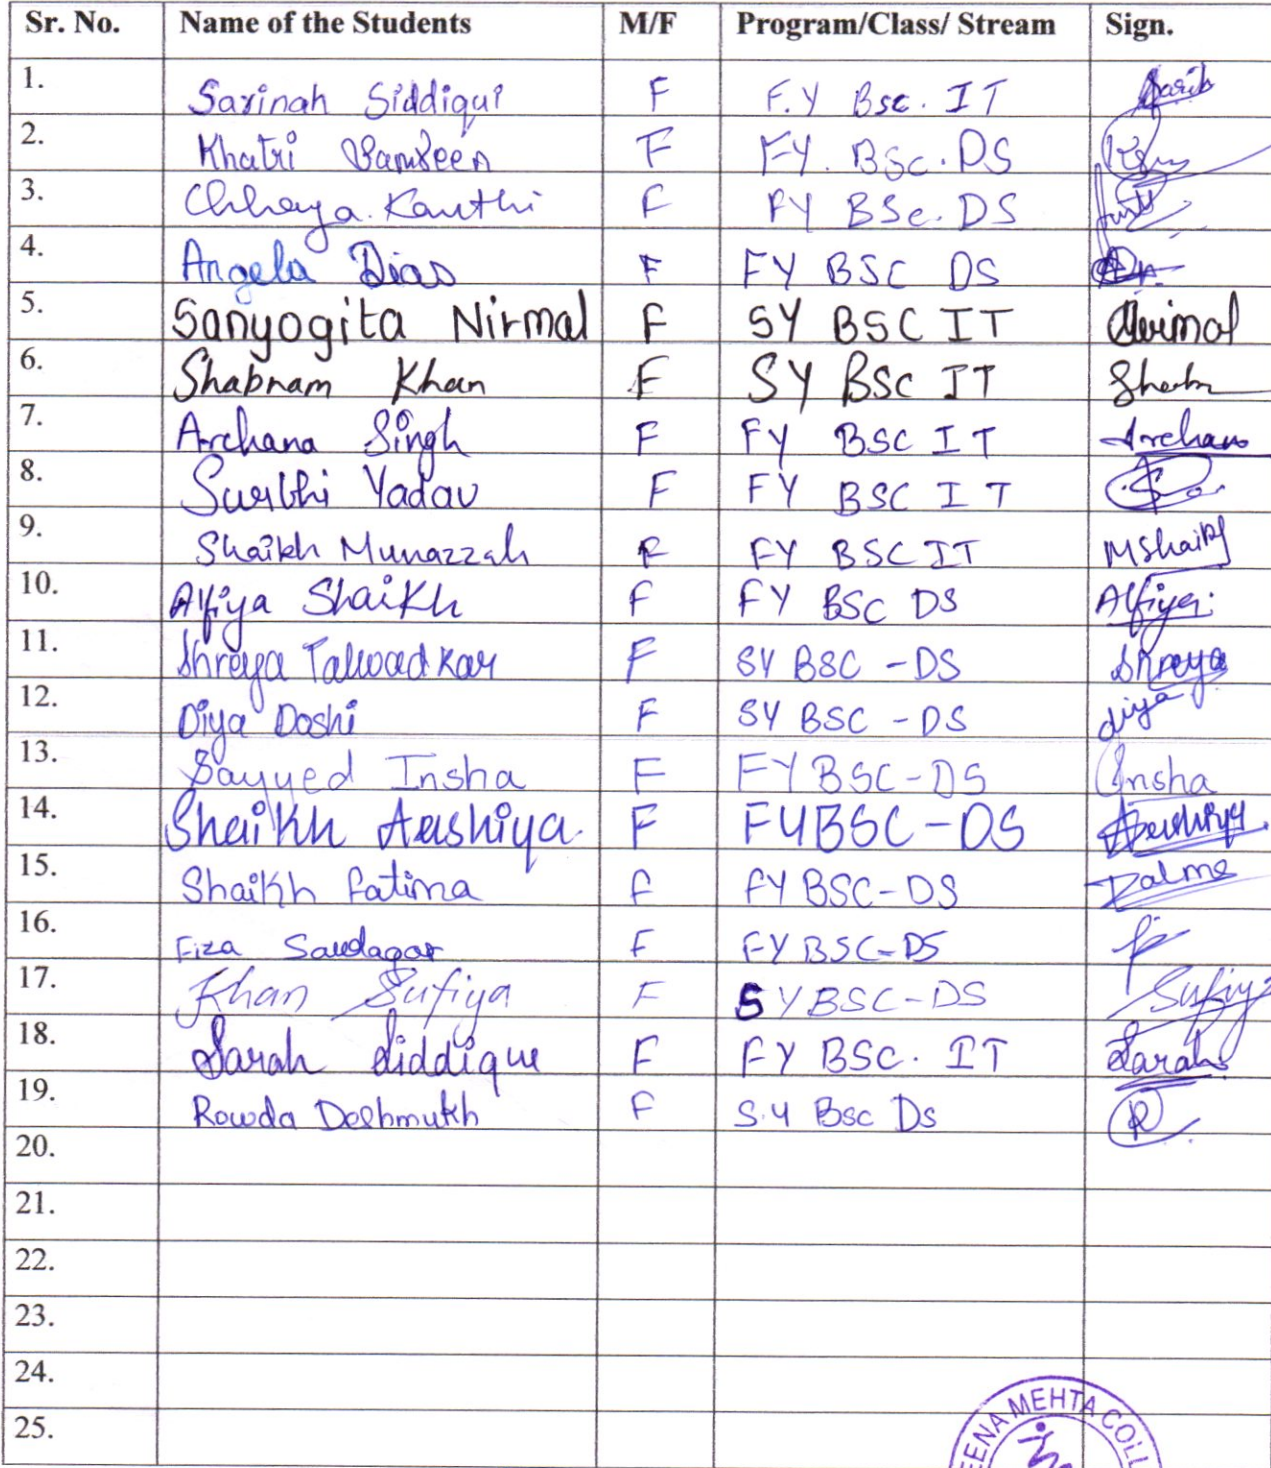 Sr. No. Name of the Students M/F Program/Class/ Stream Sign.
1. Sarinah Siddiqui F F.Y Bsc. IT
2. Khatri F FY. BSc. DS
3. Chhaya Kanthi F FY BSc. DS
4. Angela Dias F FY BSC DS
5. Sanyogita Nirmal F SY BSC IT Nirmal
6. Shabnam Khan F SY BSc IT
7. Archana Singh F FY BSC IT Archana
8. Surbhi Yadav F FY BSC IT
9. Shaikh Munazzah F FY BSC IT MShaikh
10. Alfiya Shaikh F FY BSC DS Alfiya
11. Shreya Talwadkar F SY BSC - DS Shreya
12. Diya Doshi F SY BSC - DS diya
13. Sayyed Insha F FY BSC-DS Insha
14. Shaikh Aashiya F FYBSC-DS Aashiya
15. Shaikh Fatima F FY BSC-DS
16. Fiza Saudagar F FY BSC-DS
17. Khan Sufiya F SYBSC-DS Sufiya
18. Sarah Siddique F FY BSC. IT Sarah
19. Rowda Deshmukh F S.Y Bsc Ds R
20.
21.
22.
23.
24.
25.
EENA MEHTA COLL